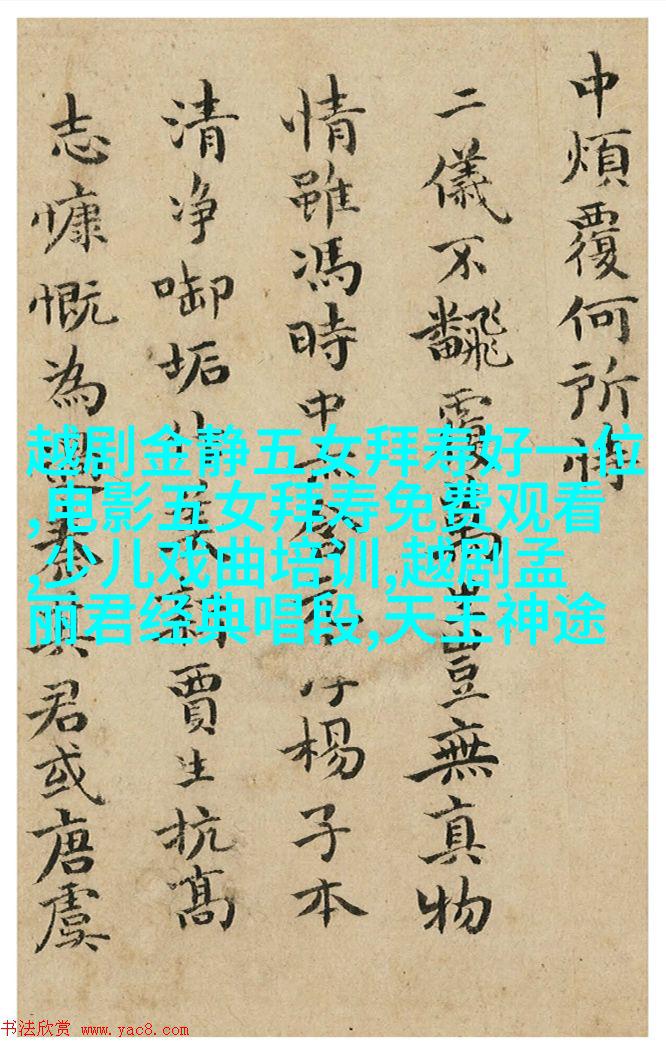 中煩覆何所恃
二儀不飜覆萬豈無真物
情雖馮時中楊子本
清净啣垢賈生抗高
志慷慨為君或唐虞
越剧金静五女拜寿好一位
,电影五女拜寿免费观看
,少儿戏曲培训,越剧孟
丽君经典唱段,天王神途
书法欣赏 www.yac8.com